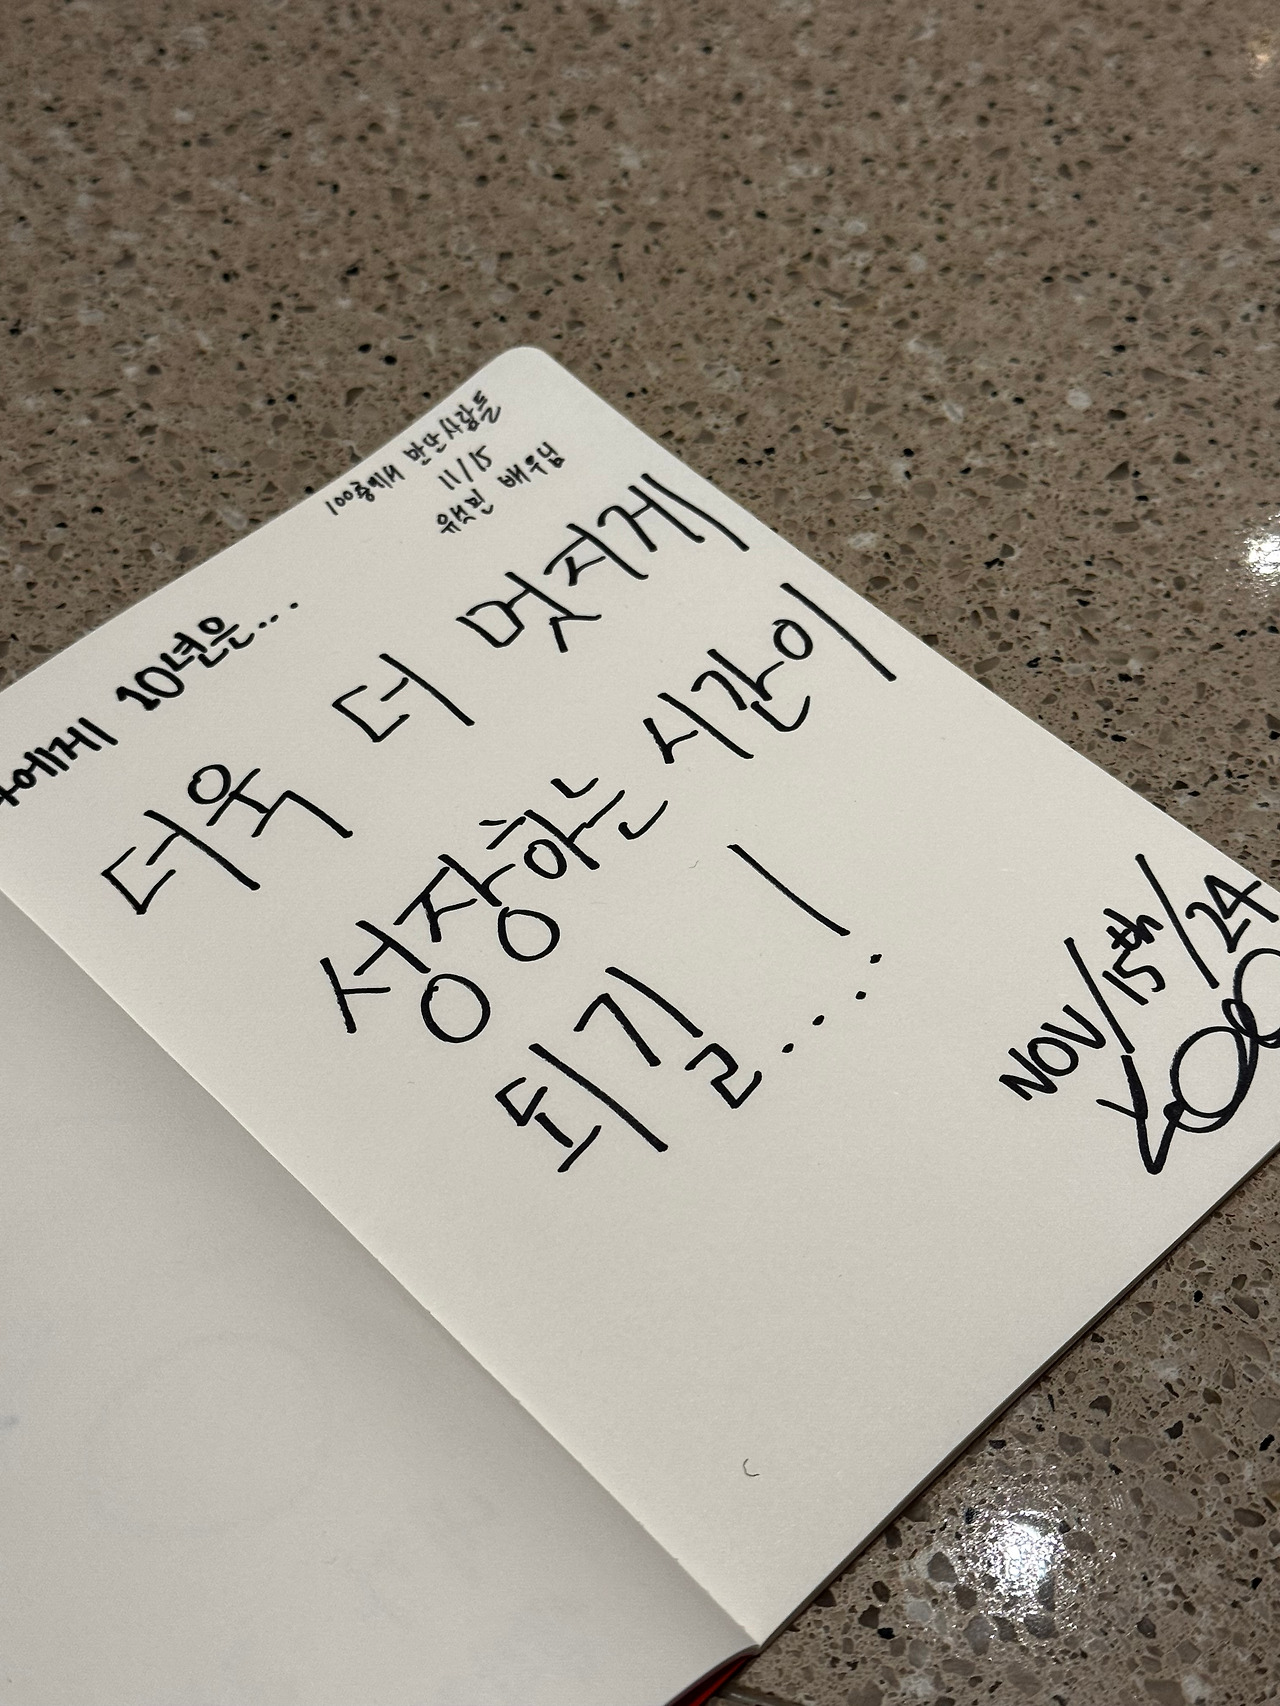 100층에서 만난 사람들
11/15
유선민 배우님
에게 10년은...
더욱 더 멋지게
성장하는 시간이
되길 ! ....
NOV/15th/24